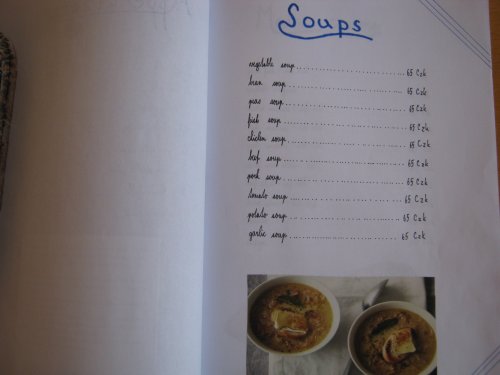 Soups
vegetable soup 65 Czk
bean soup 65 Czk
peas soup 65 Czk
fish soup 65 Czk
chicken soup 65 Czk
beef soup 65 Czk
pork soup 65 Czk
tomato soup 65 Czk
potato soup 65 Czk
garlic soup 65 Czk